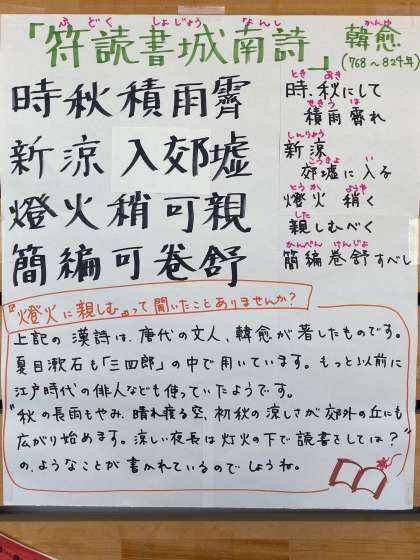 「符読書城南詩」
ふどくしょじょうなんし
韓愈
かんゆ
(768〜824年)
時秋積雨霽
新涼入郊墟
燈火稍可親
簡編可巻舒
時、秋にして
積雨霽れ
新涼
郊墟に入る
燈火 稍く
親しむべく
簡編 巻舒すべし
『燈火に親しむ』って聞いたことありませんか?
上記の漢詩は、唐代の文人、韓愈が著したものです。
夏目漱石も「三四郎」の中で用いています。もっと以前に
江戸時代の俳人なども使っていたようです。
"秋の長雨もやみ、晴れ渡る空、初秋の涼しさが郊外の丘にも
広がり始めます。涼しい夜長は灯火の下で読書をしては?"
の、ようなことが書かれているのでしょうね。